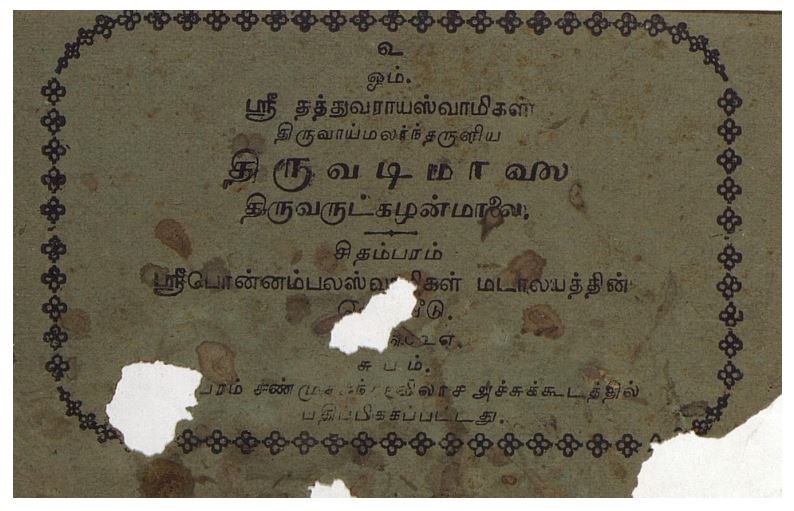 உ
ஓம்.
ஸ்ரீ தத்துவராயஸ்வாமிகள்
திருவாய்மலர்ந்தருளிய
திருவடிமாலை
திருவருட்கழன்மாலை.
சிதம்பரம்
ஸ்ரீபொன்னம்பலஸ்வாமிகள் மடாலயத்தின்
சுபம்.
அச்சுக்கூடத்தில்
பதிப்பிக்கப்பட்டது.